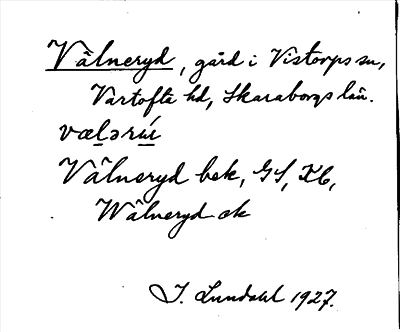 Vålneryd, gård i Vistorps sn,
Vartofta hd, Skaraborgs län.
vælərú
Vålneryd bek, GS, Xb,
Wålneryd ek
I. Lundahl 1927.